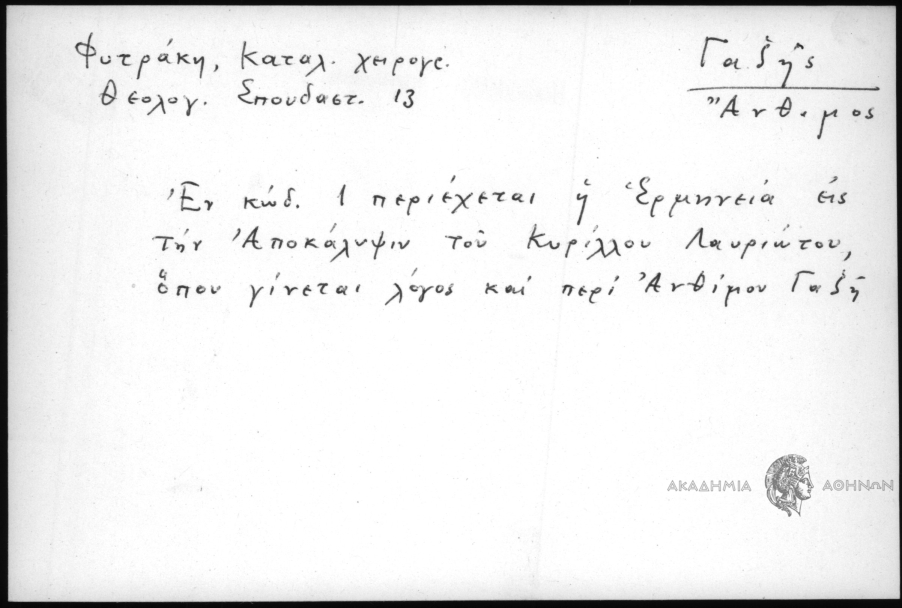 Φυτράκη, Καταλ. χειρογρ.
Θεολογ. Σπουδαστ. 13
Γαζῆς
Ἄνθιμος
Ἐν κώδ. 1 περιέχεται ἡ Ἑρμηνεία εἰς
τὴν Ἀποκάλυψιν τοῦ Κυρίλλου Λαυριώτου,
ὅπου γίνεται λόγος καὶ περὶ Ἀνθίμου Γαζῆ
ΑΚΑΔΗΜΙΑ ΑΘΗΝΩΝ